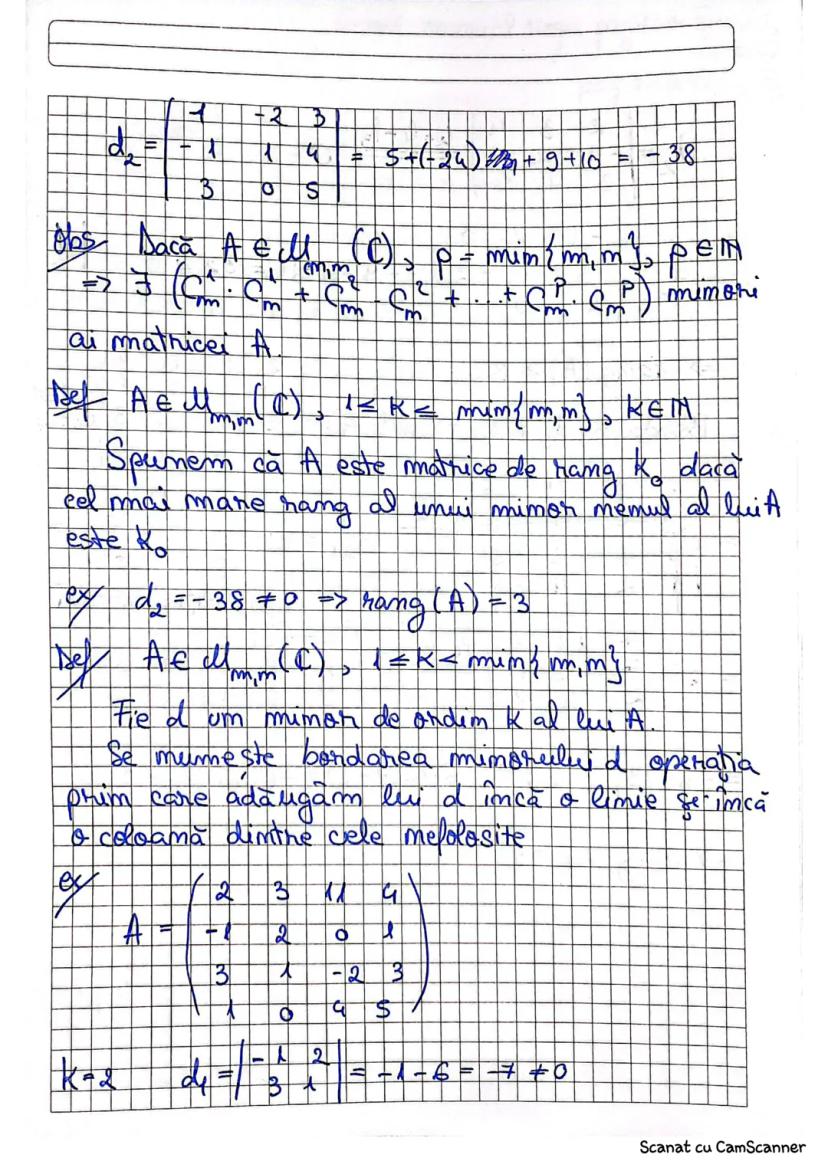 d₂ = | 1 -2 3 |
| -1 1 4 | = 5+(-24) + 9+10 = -38
| 3 0 5 |
Obs Dacă A ∈ M_{m,n}(ℂ), p = min{m,n}, p ∈ ℕ
=> ∃ (C_m^1 · C_n^1 + C_m^2 · C_n^2 + ... + C_m^p · C_n^p) minori
ai matricei A.
Def A ∈ M_{m,n}(ℂ), 1 ≤ k ≤ min{m,n}, k ∈ ℕ
Spunem că A este matrice de rang k₀ dacă
cel mai mare rang al unui minor nenul al lui A
este k₀
ex d₂ = -38 ≠ 0 => rang(A) = 3
Def A ∈ M_{m,n}(ℂ), 1 ≤ k < min{m,n}
Fie d un minor de ordin k al lui A.
Se numește bordarea minorului d operația
prin care adăugăm lui d încă o linie și încă
o coloană dintre cele nefolosite
ex
( 2 3 11 4 )
A = ( -1 2 0 1 )
( 3 1 -2 3 )
( 1 0 4 5 )
k=2 d₁ = | -1 2 | = -1-6 = -7 ≠ 0
| 3 1 |
Scanat cu CamScanner